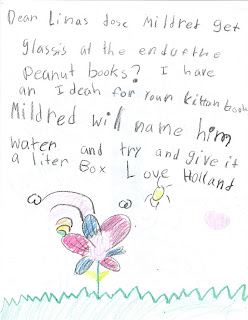 Dear Linas dose Mildret get
glassis at the endufthe
Peanut books? I have
an Ideah for youn kittan book
Mildred will name him
water and try and give it
a liter Box Love Holland